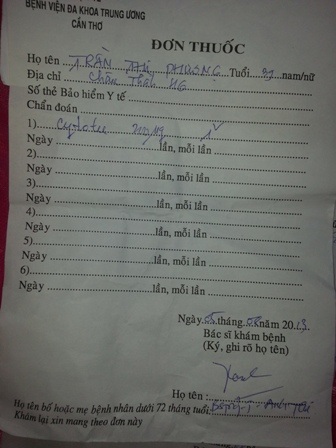 BỆNH VIỆN ĐA KHOA TRUNG ƯƠNG
CẦN THƠ
ĐƠN THUỐC
Họ tên TRẦN THỊ PHƯƠNG Tuổi 91 nam/nữ
Địa chỉ Châu Thành HG
Số thẻ Bảo hiểm Y tế
Chẩn đoán
1) Cytotec 200µg 1v
Ngày lần, mỗi lần
2)
Ngày lần, mỗi lần
3)
Ngày lần, mỗi lần
4)
Ngày lần, mỗi lần
5)
Ngày lần, mỗi lần
6)
Ngày lần, mỗi lần
Ngày 05 tháng 08 năm 2013
Bác sĩ khám bệnh
(Ký, ghi rõ họ tên)
Họ tên :
Họ tên bố hoặc mẹ bệnh nhân dưới 72 tháng tuổi:
Khám lại xin mang theo đơn này